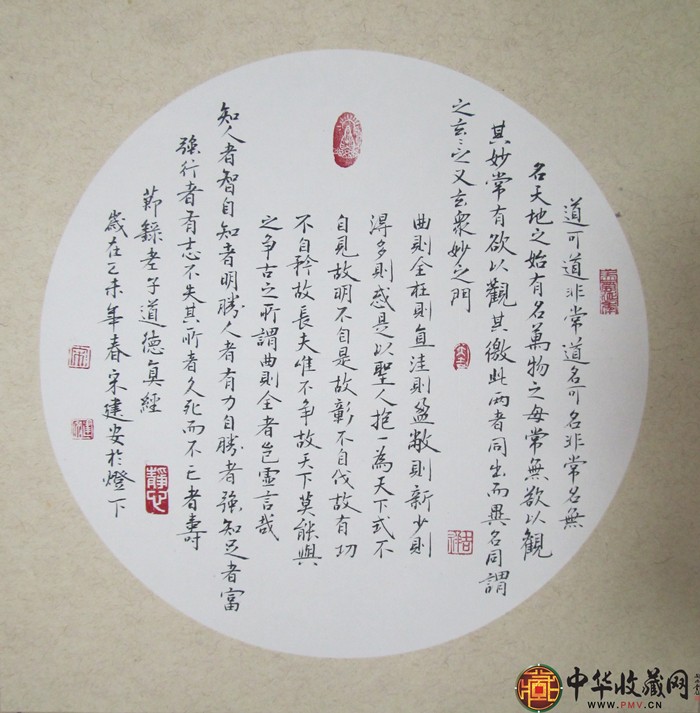 道可道非常道名可名非常名無
名天地之始有名萬物之母常無欲以觀
其妙常有欲以觀其徼此两者同出而異名同謂
之玄玄之又玄衆妙之門
曲則全枉則直洼則盈敝則新少則
淂多則惑是以聖人抱一為天下式不
自見故明不自是故彰不自伐故有功
不自矜故長夫唯不争故天下莫能與
之争古之所謂曲則全者豈虚言哉
知人者智自知者明勝人者有力自勝者強知足者富
強行者有志不失其所者久死而不亡者壽
節錄老子道德真經
歲在乙未年春宋建安於燈下
靜心
中华收藏网
WWW.PMV.CN